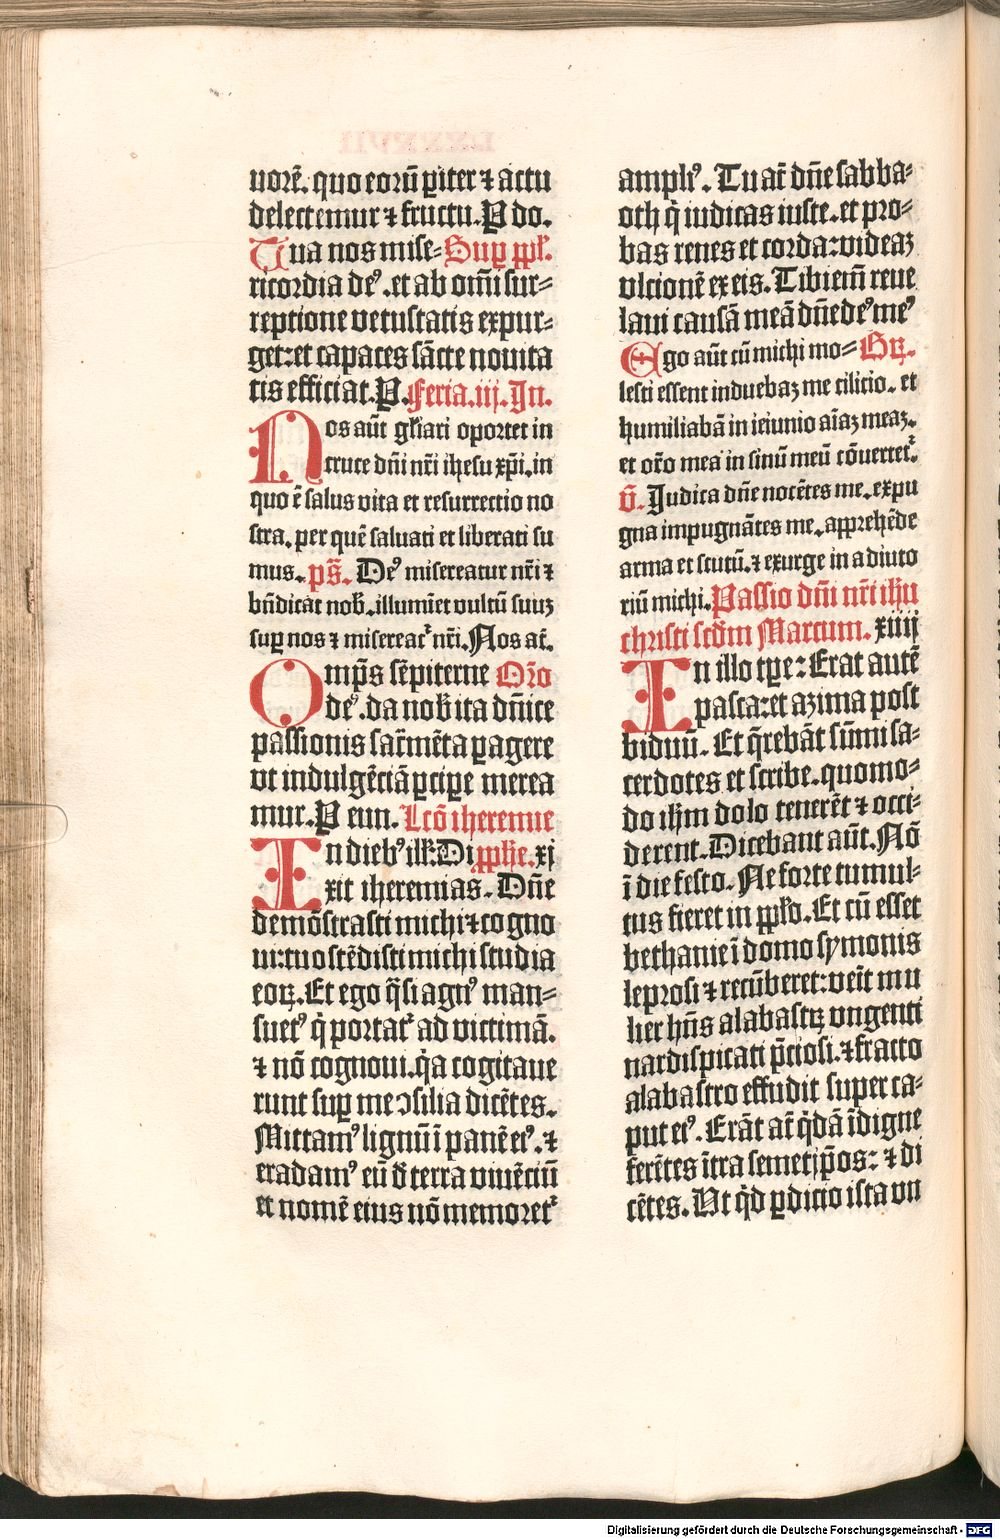 uorē. quo eorū ꝑiter ⁊ actu
delectemur ⁊ fructu. P do.
Tua nos mise- Suꝑ ppl̄.
ricordia deꝰ .et ab om̄i sur-
reptione vetustatis expur-
get:et capaces sācte nouita
tis efficiat. P. Feria.iij. In.
Nos aūt gl̄iari oportet in
cruce dn̄i nr̄i ihesu xp̄i. in
quo ē salus vita et resurrectio no
stra. per quē saluati et liberati su
mus. ps̄. Deꝰ misereatur nr̄i ⁊
bn̄dicat nob̄. illumīet vultū suuꝫ
suꝑ nos ⁊ misereat᷑ nr̄i. Nos at̄.
Omp̄s sēpiterne Oŕo
deꝰ .da nob̄ ita dn̄ice
passionis sac̄mēta ꝑagere
vt indulgēciā ꝑcipe merea
mur. P eun. Lcō iheremie
In diebꝰ ill̄. Di pph̄e. xj
xit iheremias. Dn̄e
demōstrasti michi ⁊ cogno
ui: tu ostēdisti michi studia
eoꝝ. Et ego q̄si agnꝰ man-
suetꝰ q̄ portat᷑ ad victimā.
⁊ nō cognoui. q̄a cogitaue
runt suꝑ me ɔsilia dicētes.
Mittamꝰ lignū ī panē eiꝰ. ⁊
eradamꝰ eū đ terra viuēciū
et nomē eius nō memoret᷑
ampliꝰ. Tu at̄ dn̄e sabba-
oth q̄ iudicas iuste. et pro-
bas renes et corda: videaꝫ
vlcionē ex eis. Tibi em̄ reue
laui causā meā dn̄e deꝰ meꝰ
Ego aūt cū michi mo- Gꝝ.
lesti essent induebaꝫ me cilicio. et
humiliabā in ieiunio aīaꝫ meaꝫ.
et or̄o mea in sinū meū cōuertet᷑.
v̄. Judica dn̄e nocētes me. expu
gna impugnātes me. apprehēde
arma et scutū. ⁊ exurge in adiuto
riū michi. Passio dn̄i nr̄i ihū
christi scd̄m Marcum. xiiij
In illo tꝑe: Erat autē
pasca: et azima post
biduū. Et q̄rebāt sūmi sa-
cerdotes et scribe. quomo-
do ih̄m dolo tenerēt ⁊ occi-
derent. Dicebant aūt. Nō
ī die festo. Ne forte tumul-
tus fieret in ppl̄o. Et cū esset
bethanie ī domo symonis
leprosi ⁊ recūberet: veīt mu
lier hn̄s alabastꝝ vngenti
nardi spicati p̄ciosi. ⁊ fracto
alabastro effudit super ca-
put eiꝰ. Erāt at̄ q̄dā īdigne
ferētes ītra semetip̄os: ⁊ di
cētes. Vt q̄d ꝑdicio ista vn
Digitalisierung gefördert durch die Deutsche Forschungsgemeinschaft - DFG